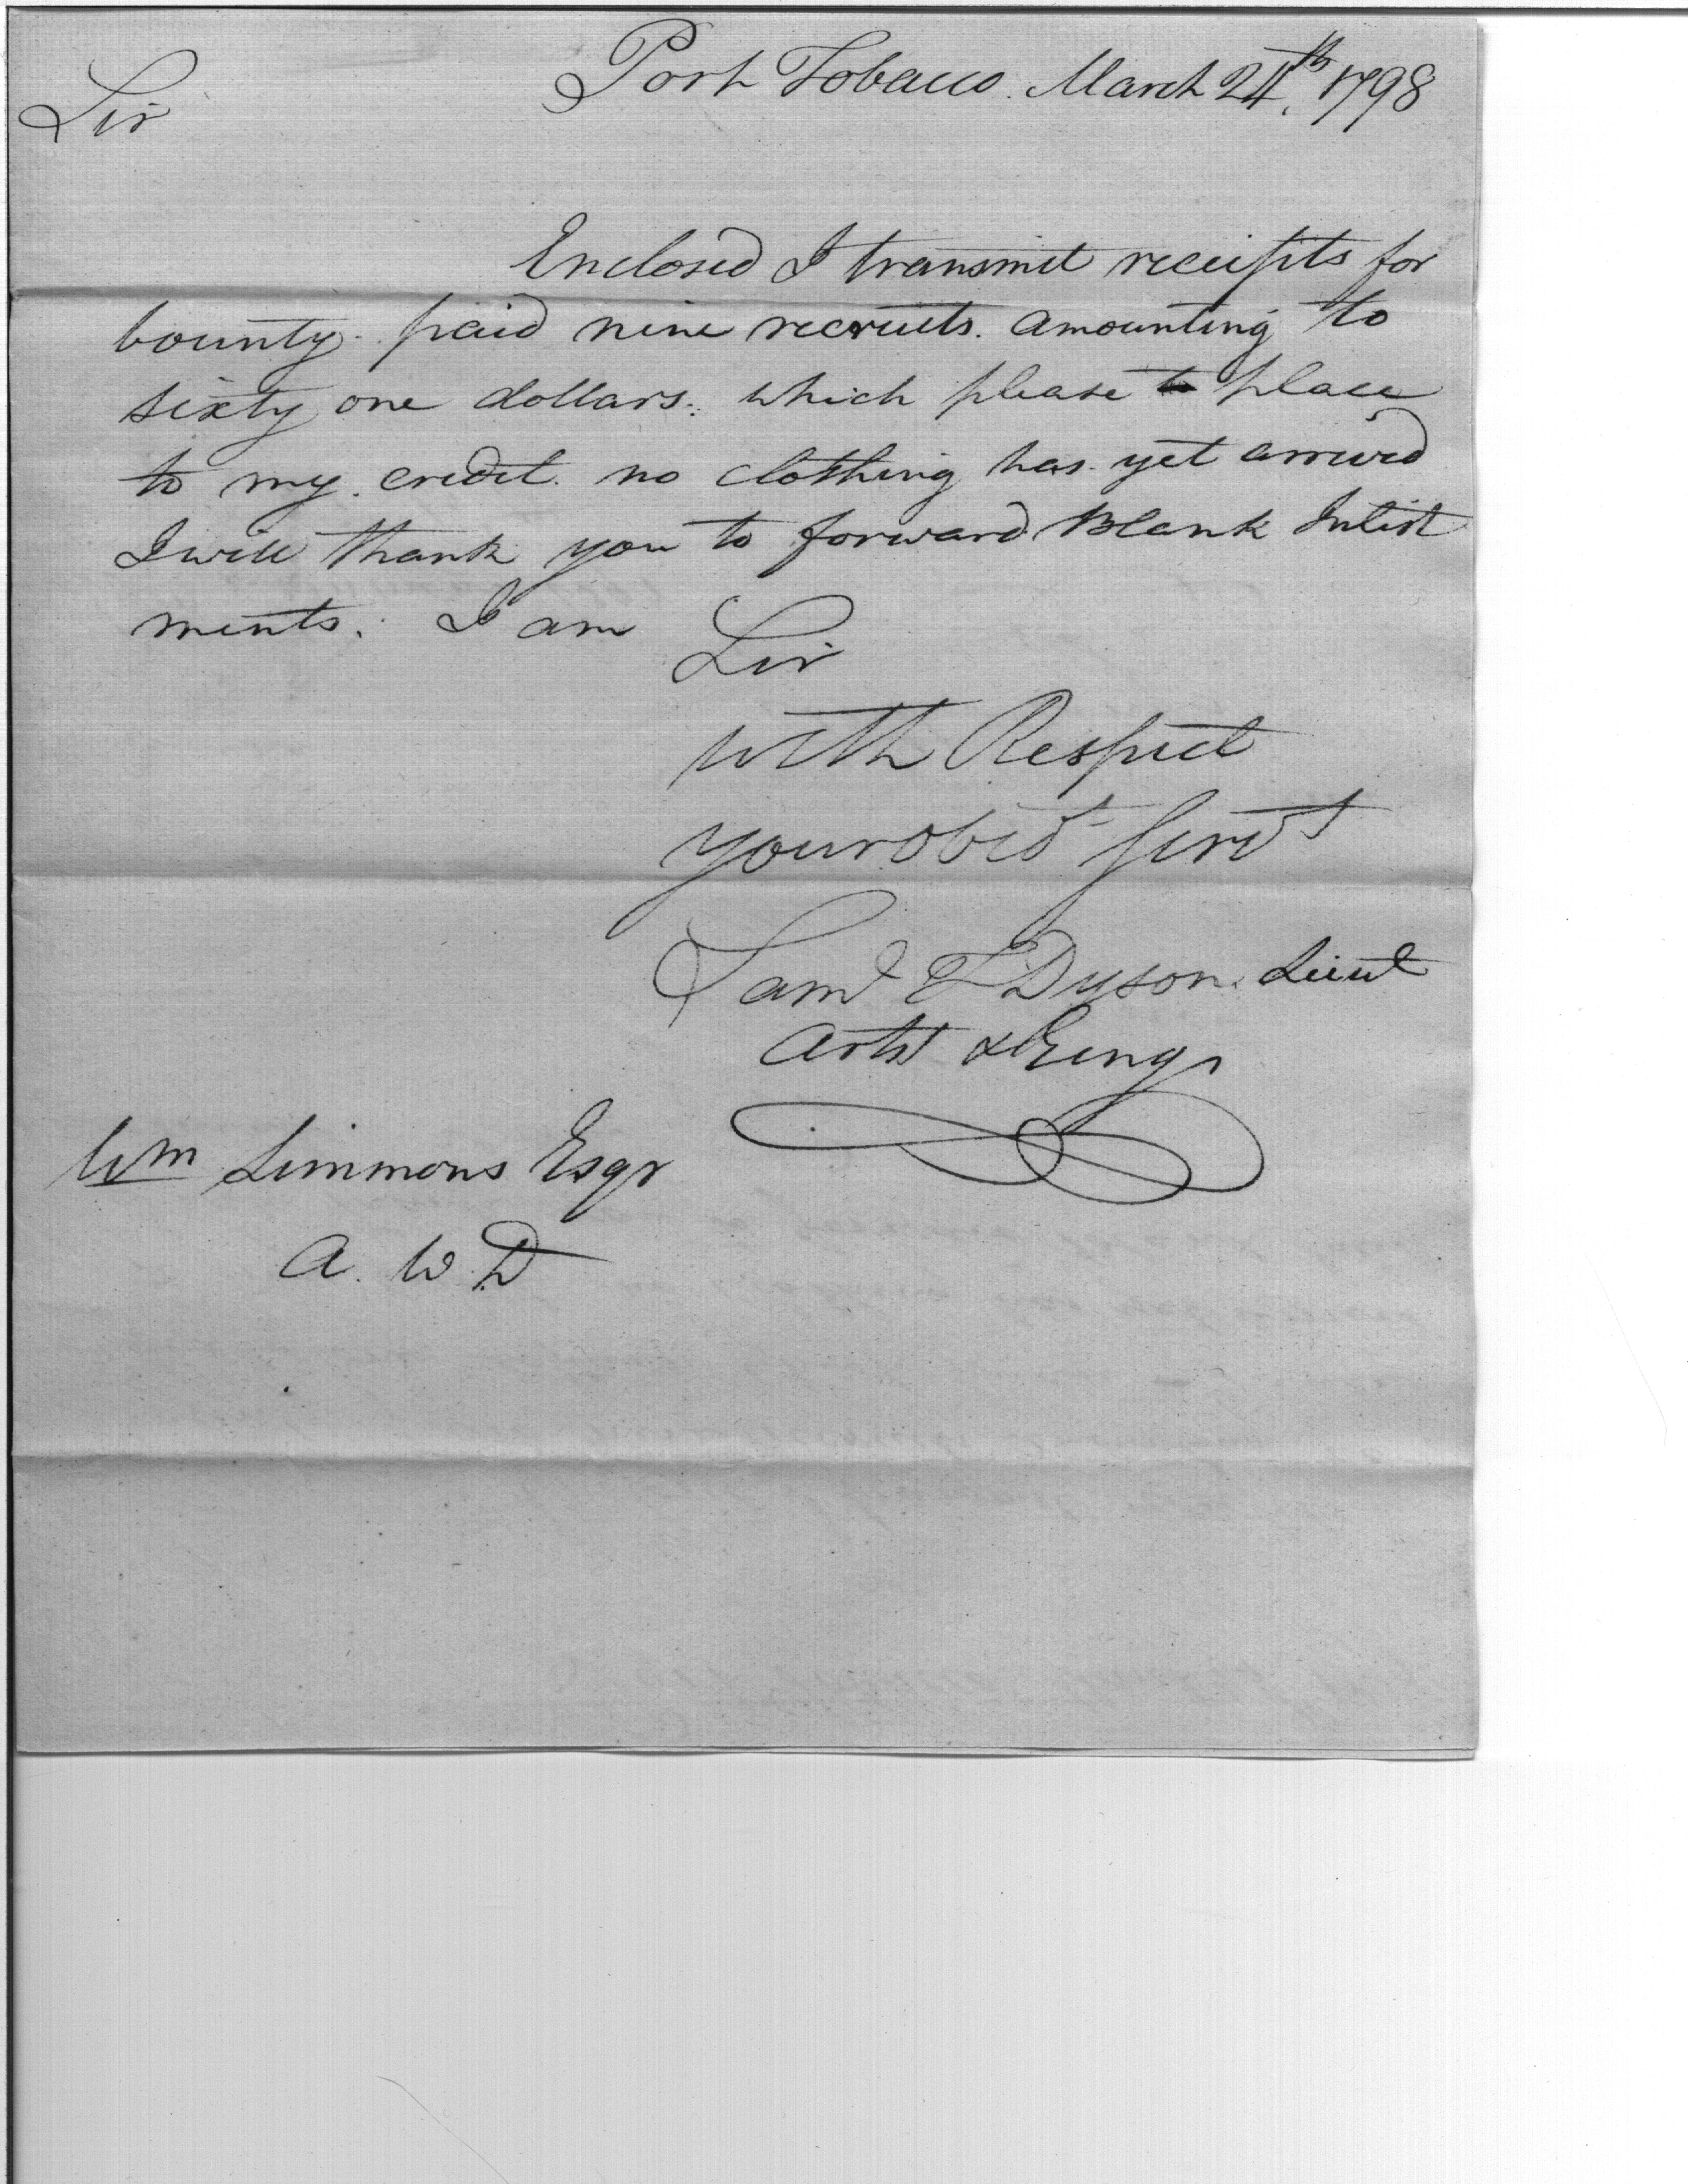 Port Tobacco. March 24th, 1798
Sir
Enclosed I transmit receipts for
bounty paid nine recruits. amounting to
sixty one dollars. which please to place
to my credit. no clothing has yet arrived
I will thank you to forward Blank Inlist
ments. I am
Sir
with Respect
your obed servt
Saml T Dyson. Lieut
Arts & Engs
Wm Simmons Esqr
A. W. D